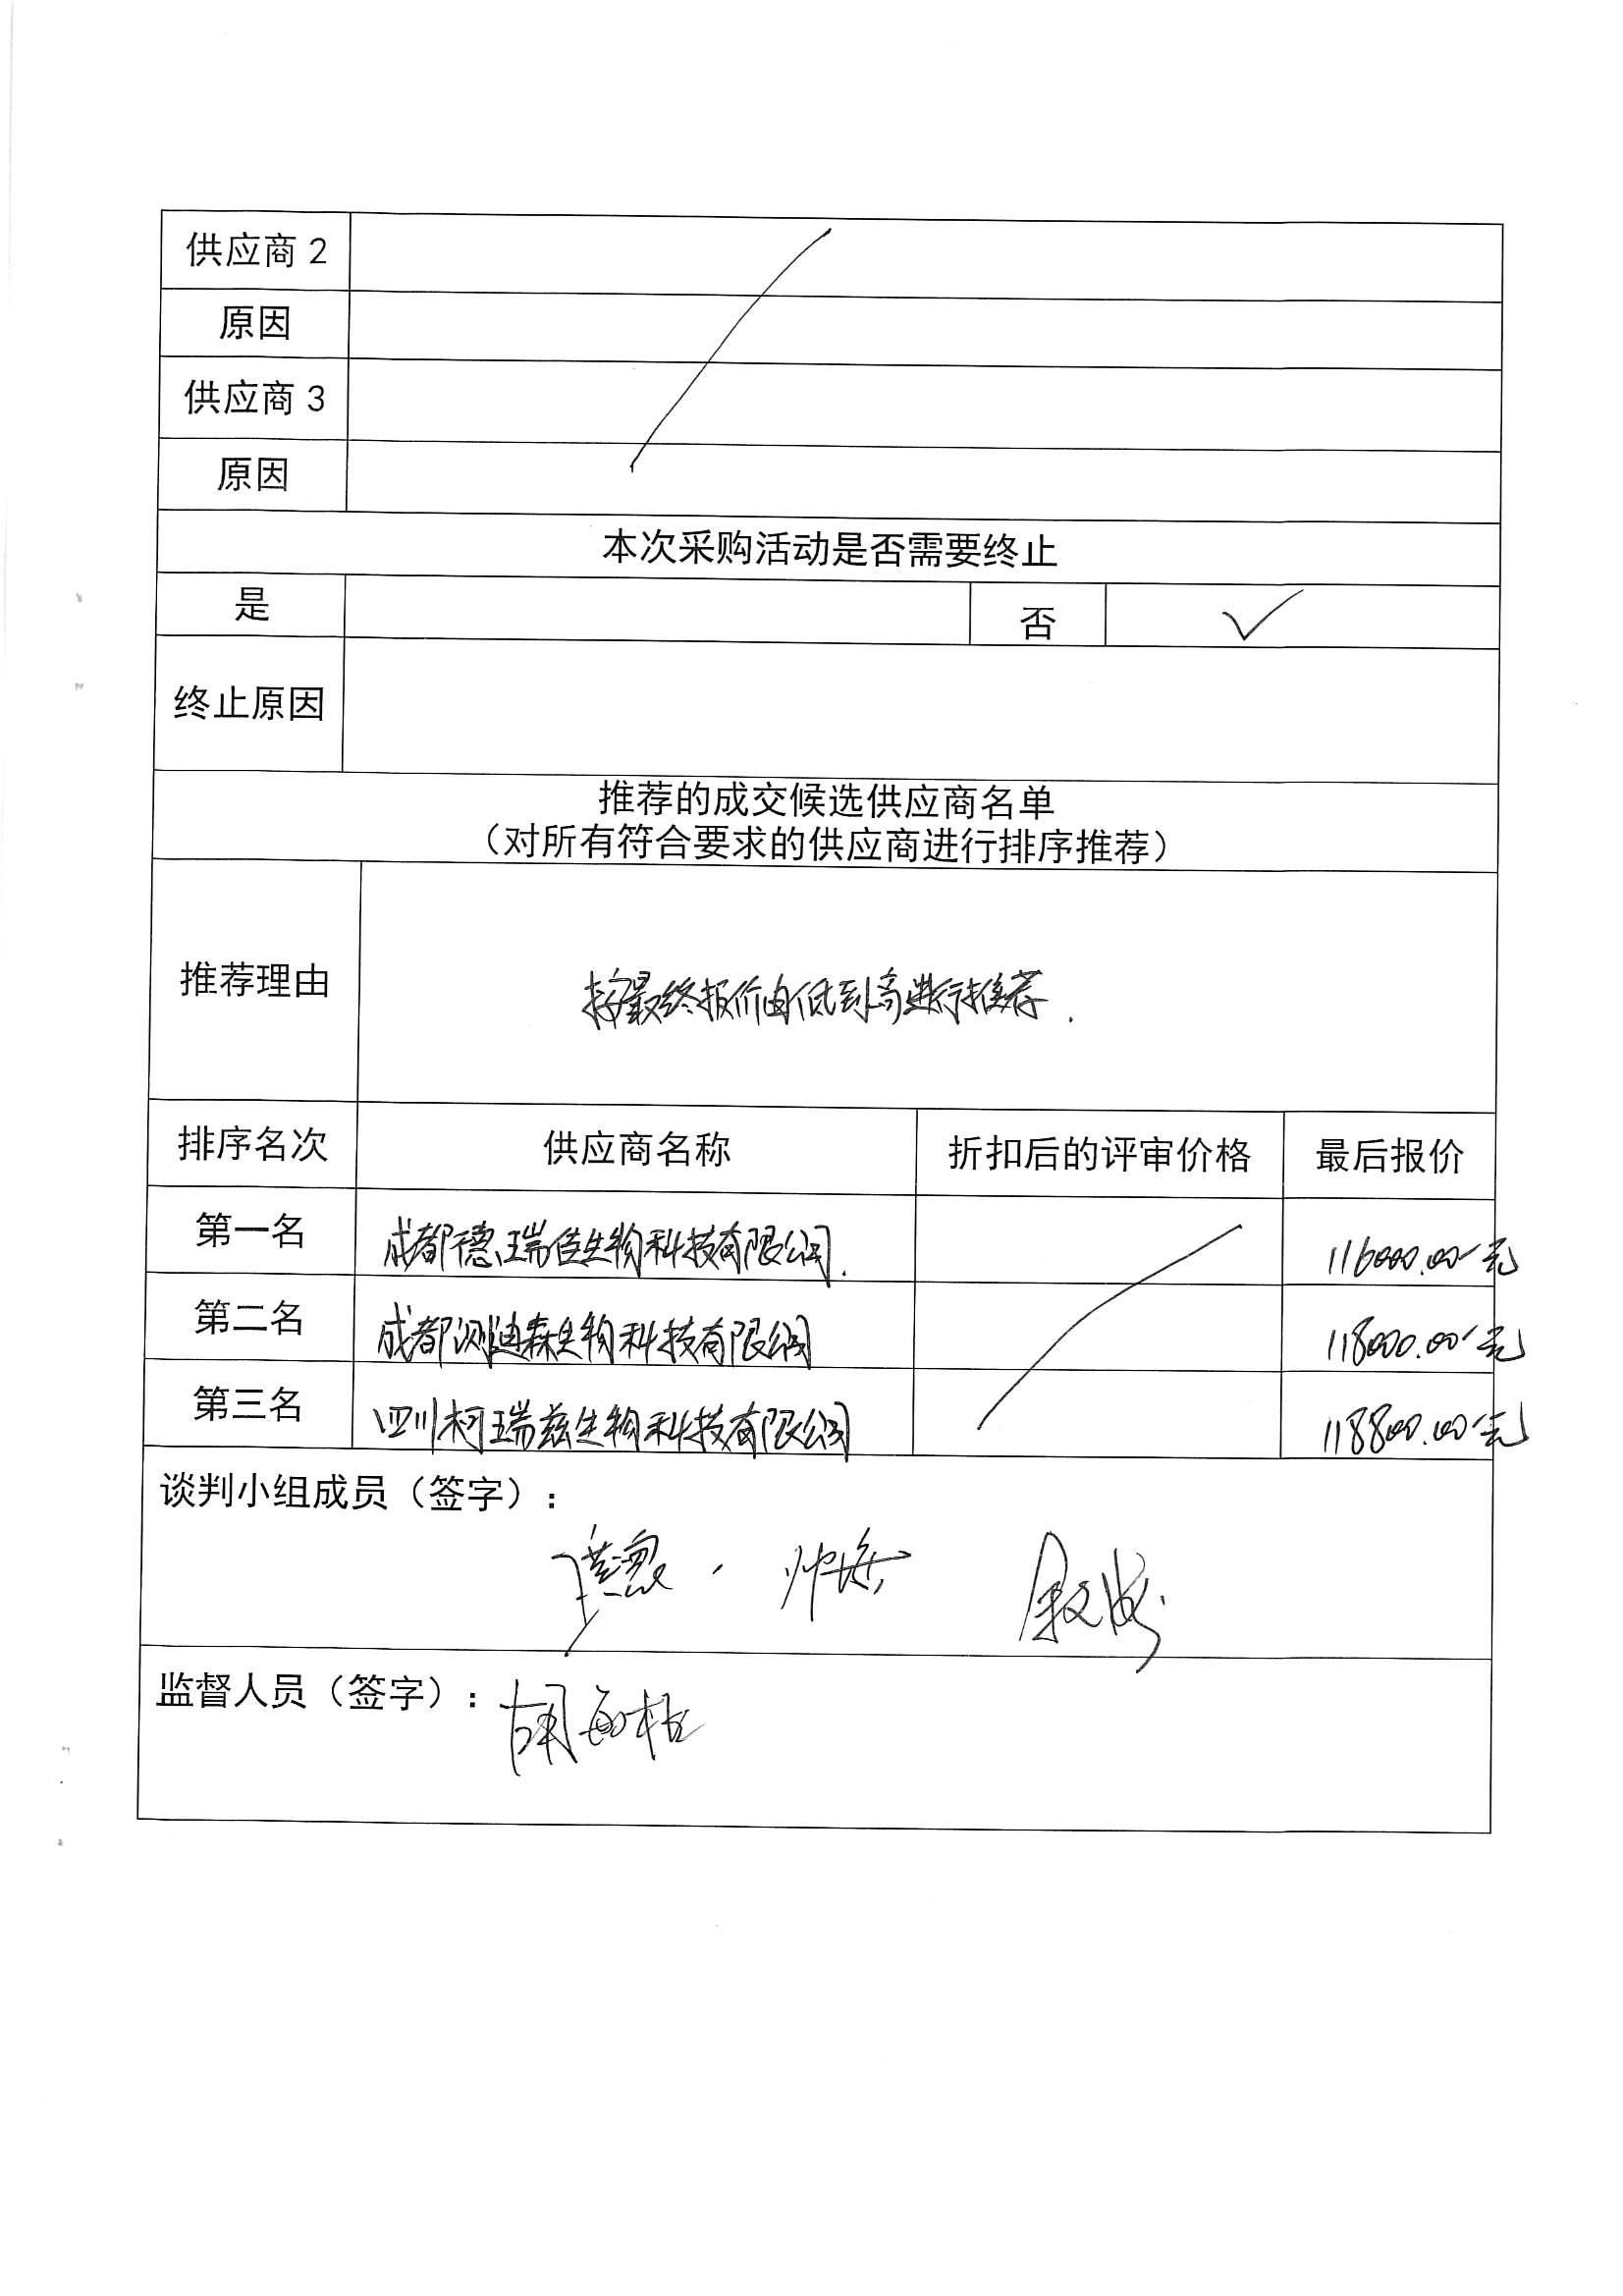 供应商 2
原因
供应商 3
原因
本次采购活动是否需要终止
是 否 ✓
终止原因
推荐的成交候选供应商名单
（对所有符合要求的供应商进行排序推荐）
推荐理由 按最终报价由低到高进行推荐.
排序名次 供应商名称 折扣后的评审价格 最后报价
第一名 成都德瑞佳生物科技有限公司. 116000.00元
第二名 成都测迪森生物科技有限公司 118000.00元
第三名 四川柯瑞兹生物科技有限公司 118800.00元
谈判小组成员（签字）:
监督人员（签字）: